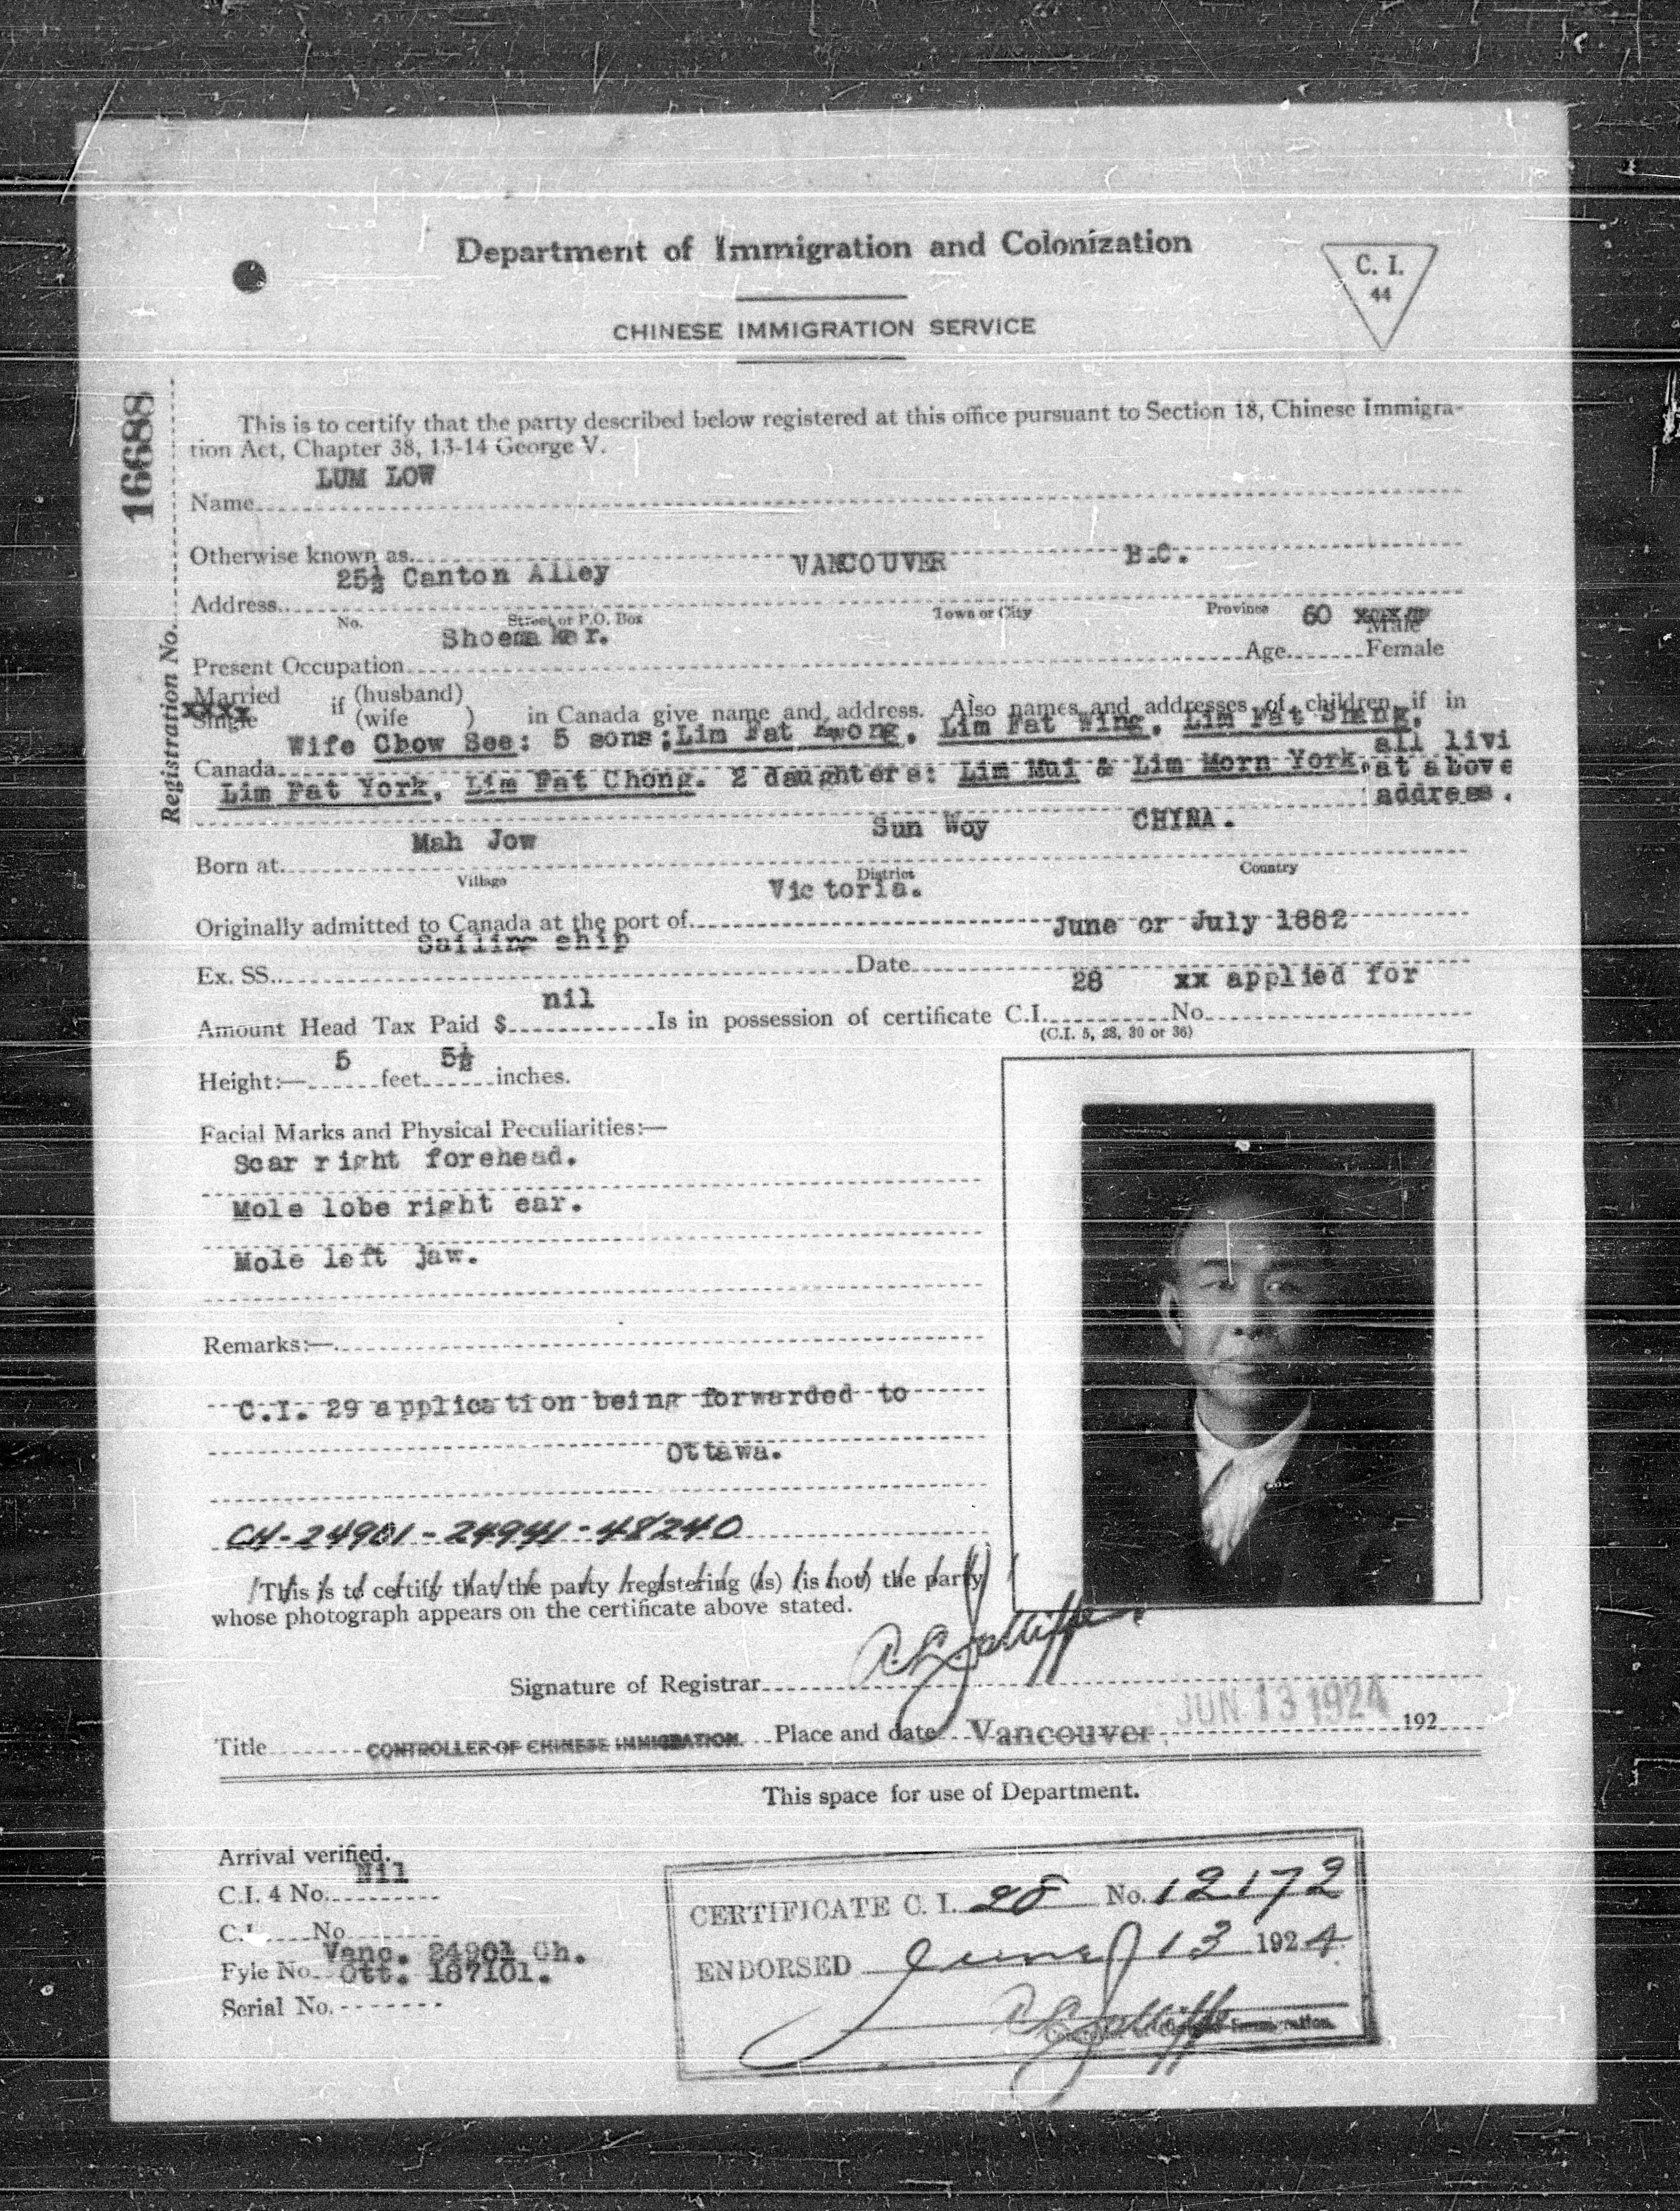 Department of Immigration and Colonization
C. I.
44
CHINESE IMMIGRATION SERVICE
16688
Registration No.
This is to certify that the party described below registered at this office pursuant to Section 18, Chinese Immigra-
tion Act, Chapter 38, 13-14 George V.
LUM LOW
Name
Otherwise known as
25½ Canton Alley VANCOUVER B.C.
Address
No. Street or P.O. Box Town or City Province
Shoemaker. 60 Male
Present Occupation Age Female
Married if (husband)
Single (wife ) in Canada give name and address. Also names and addresses of children if in
Wife Chow See: 5 sons; Lim Fat Kwong, Lim Fat Wing, Lim Fat Shang,
Canada all livi
Lim Fat York, Lim Fat Chong. 2 daughters: Lim Mui & Lim Morn York, at above
address.
Mah Jow Sun Woy CHINA.
Born at
Village District Country
Victoria.
Originally admitted to Canada at the port of
Sailing ship June or July 1882
Ex. SS. Date
nil 28 xx applied for
Amount Head Tax Paid $ Is in possession of certificate C.I. No.
(C.I. 5, 28, 30 or 36)
5 5½
Height:— feet inches.
Facial Marks and Physical Peculiarities:—
Scar right forehead.
Mole lobe right ear.
Mole left jaw.
Remarks:—
C.I. 29 application being forwarded to
Ottawa.
CH-24901-24941-48240
This is to certify that the party registering (is) (is not) the party
whose photograph appears on the certificate above stated.
Signature of Registrar
Title CONTROLLER OF CHINESE IMMIGRATION. Place and date Vancouver. JUN 13 1924 192
This space for use of Department.
Arrival verified.
Nil
C.I. 4 No.
C.I. No
Vanc. 24901 Ch.
Fyle No. Ott. 187101.
Serial No.
CERTIFICATE C. I. 28 No. 12172
ENDORSED June 13 1924